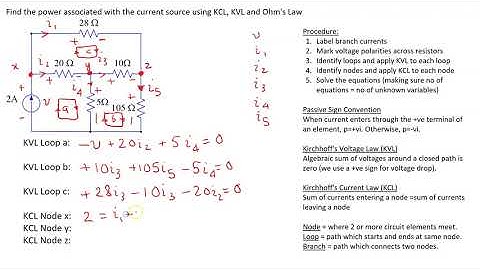 Find the power associated with the current source using KCL, KVL and Ohm's Law
i₁ 28Ω
x i₂ 20Ω y i₃ 10Ω z
c
i₄ i₅
2A v a 5Ω b 105Ω
v
i₁
i₂
i₃
i₄
i₅
KVL Loop a: -v + 20i₂ + 5i₄ = 0
KVL Loop b: +10i₃ + 105i₅ - 5i₄ = 0
KVL Loop c: +28i₃ - 10i₃ - 20i₂ = 0
KCL Node x: 2 = i₁ +
KCL Node y:
KCL Node z:
Procedure:
1. Label branch currents
2. Mark voltage polarities across resistors
3. Identify loops and apply KVL to each loop
4. Identify nodes and apply KCL to each node
5. Solve the equations (making sure no of
equations = no of unknown variables)
Passive Sign Convention
When current enters through the +ve terminal of
an element, p=+vi. Otherwise, p=-vi.
Kirchhoff's Voltage Law (KVL)
Algebraic sum of voltages around a closed path is
zero (we use a +ve sign for voltage drop).
Kirchhoff's Current Law (KCL)
Sum of currents entering a node =sum of currents
leaving a node
Node = where 2 or more circuit elements meet.
Loop = path which starts and ends at same node.
Branch = path which connects two nodes.